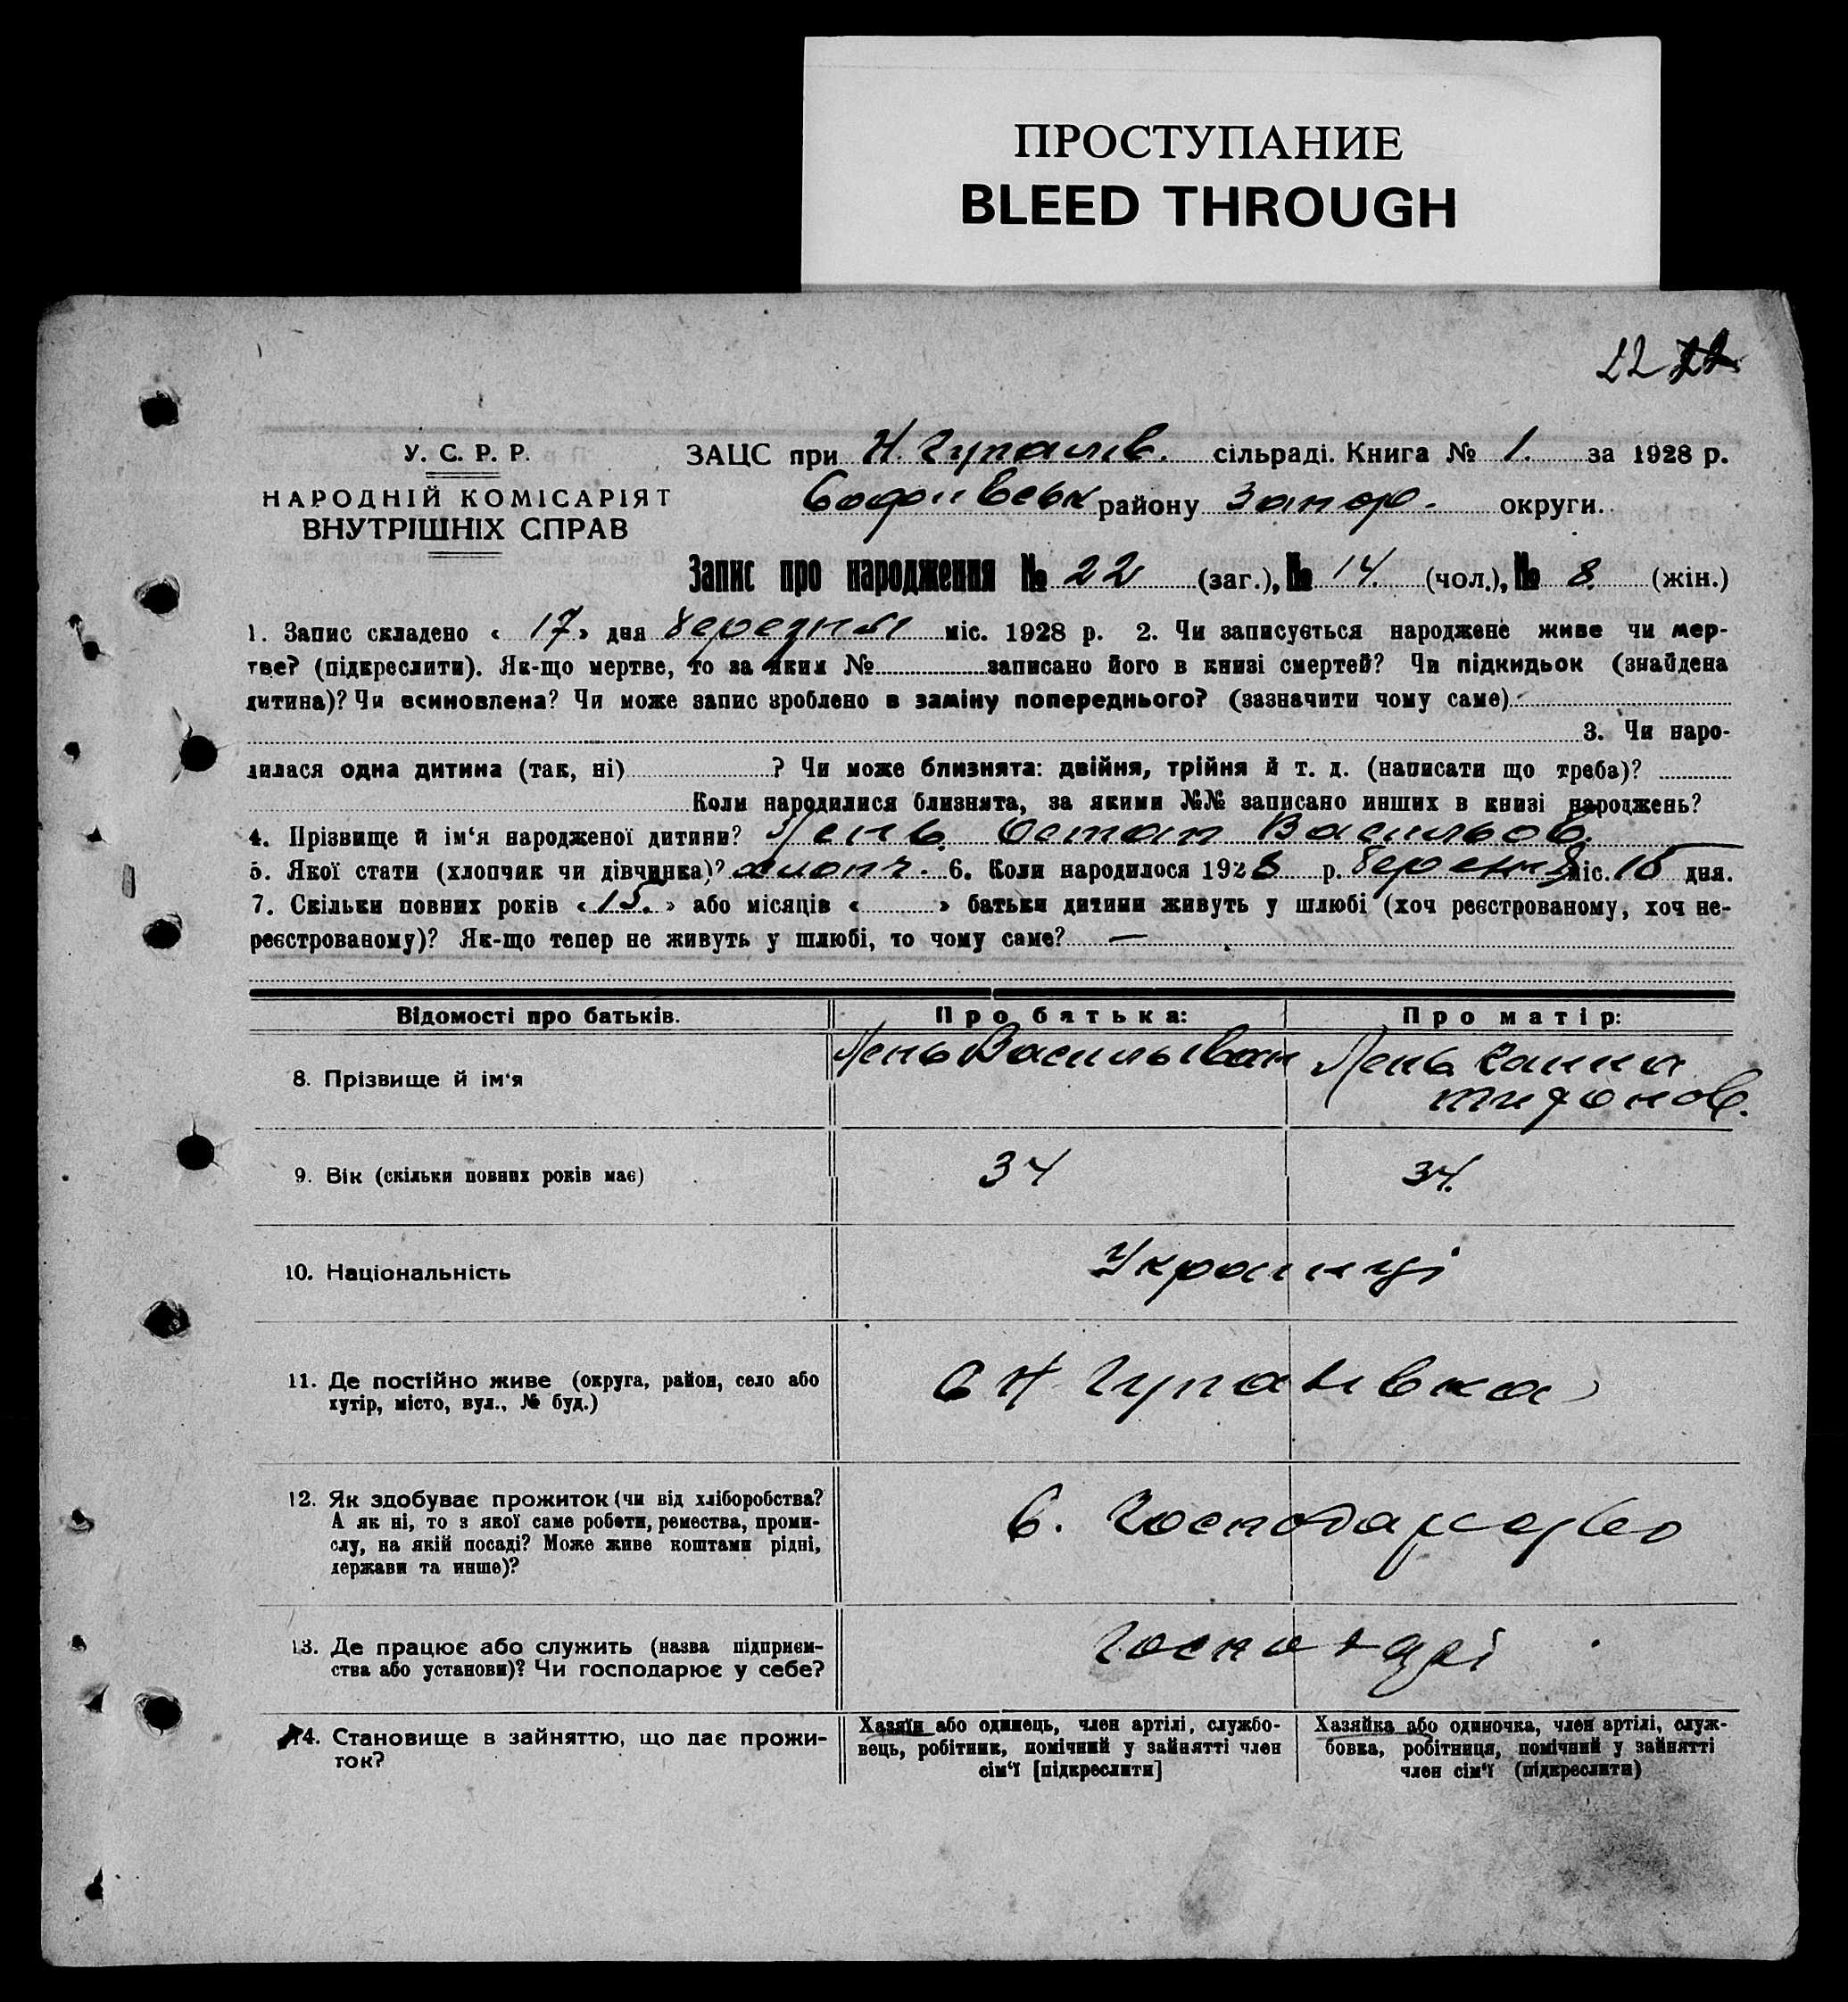 ПРОСТУПАНИЕ
BLEED THROUGH
22
У. С. Р. Р.
НАРОДНІЙ КОМІСАРІЯТ
ВНУТРІШНІХ СПРАВ
ЗАЦС при Н. Гупалів. сільраді. Книга № 1. за 1928 р.
Софиївськ району Запор. округи.
Запис про народження № 22 (заг.), № 14. (чол.), № 8. (жін.)
1. Запис складено « 17 » дня березня міс. 1928 р. 2. Чи записується народжене живе чи мер-
тве? (підкреслити). Як-що мертве, то за яким № записано його в книзі смертей? Чи підкидьок (знайдена
дитина)? Чи всиновлена? Чи може запис зроблено в заміну попереднього? (зазначити чому саме)
3. Чи наро-
дилася одна дитина (так, ні) ? Чи може близнята: двійня, трійня й т. д. (написати що треба)?
Коли народилися близнята, за якими №№ записано инших в книзі народжень?
4. Прізвище й ім'я народженої дитини? Лень Остап Васильов.
5. Якої стати (хлопчик чи дівчинка)? хлопч. 6. Коли народилося 1928 р. березня міс. 15 дня.
7. Скільки повних років « 15. » або місяців « » батьки дитини живуть у шлюбі (хоч реєстрованому, хоч не-
реєстрованому)? Як-що тепер не живуть у шлюбі, то чому саме? —
Відомості про батьків. Про батька: Про матір:
8. Прізвище й ім'я Лень Василь Іван Лень Ганна
9. Вік (скільки повних років має) 34 34.
10. Національність Українці
11. Де постійно живе (округа, район, село або
хутір, місто, вул., № буд.) С Н Гупалівка
12. Як здобуває прожиток (чи від хліборобства?
А як ні, то з якої саме роботи, ремества, проми-
слу, на якій посаді? Може живе коштами рідні,
держави та инше)? С. Господарство
13. Де працює або служить (назва підприєм-
ства або установи)? Чи господарює у себе? господарі
14. Становище в зайняттю, що дає прожи-
ток?
Хазяїн або одинець, член артілі, службо-
вець, робітник, помічний у зайнятті член
сім'ї [підкреслити]
Хазяйка або одиночка, член артілі, служ-
бовка, робітниця, помічний у зайнятті
член сім'ї (підкреслити)